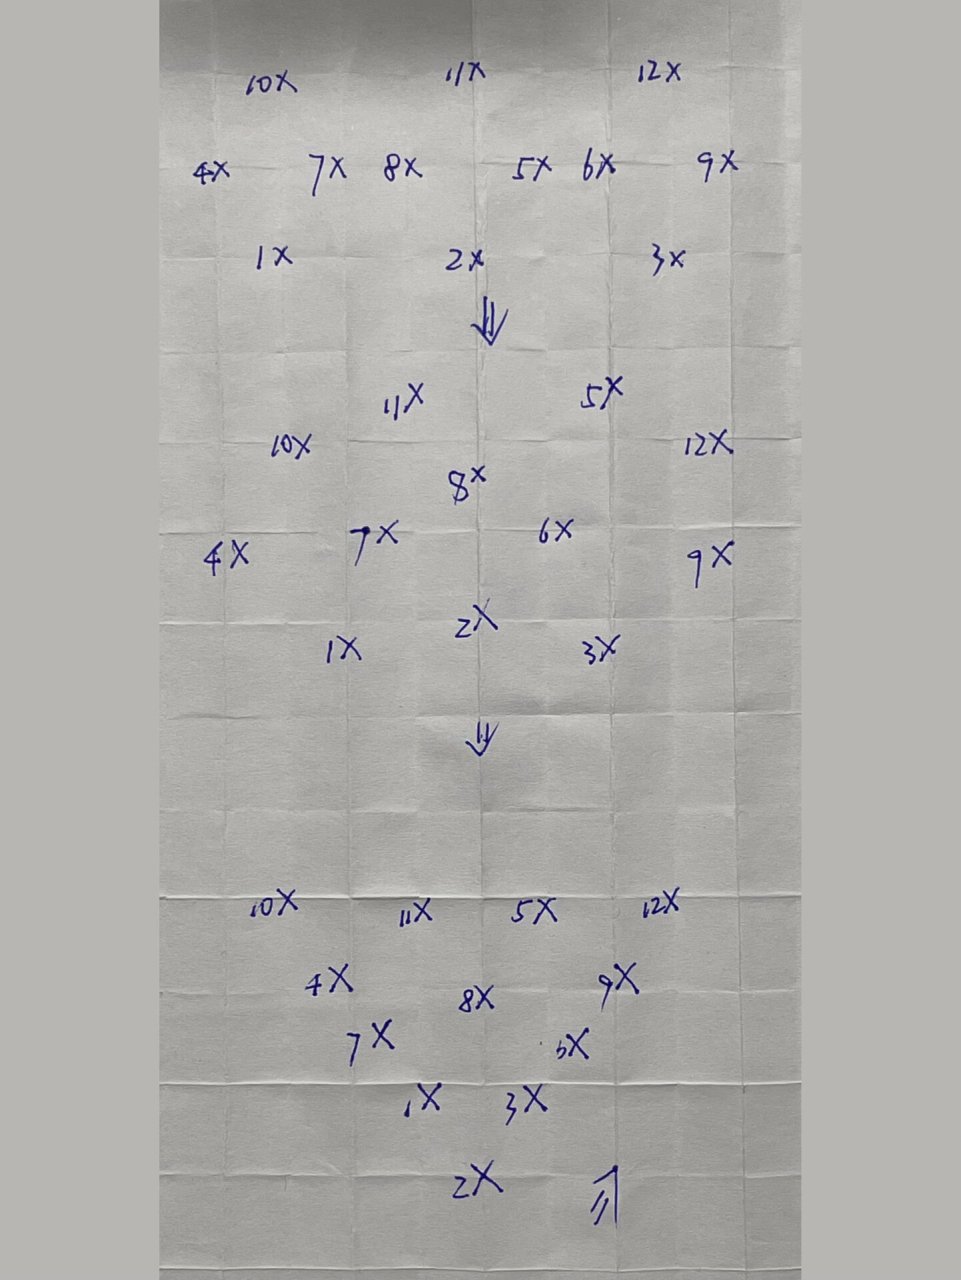 10X 11X 12X
4X 7X 8X 5X 6X 9X
1X 2X 3X
⇓
11X 5X
10X 12X
8X
7X 6X
4X 9X
2X
1X 3X
⇓
10X 11X 5X 12X
4X 9X
8X
7X 6X
1X 3X
2X